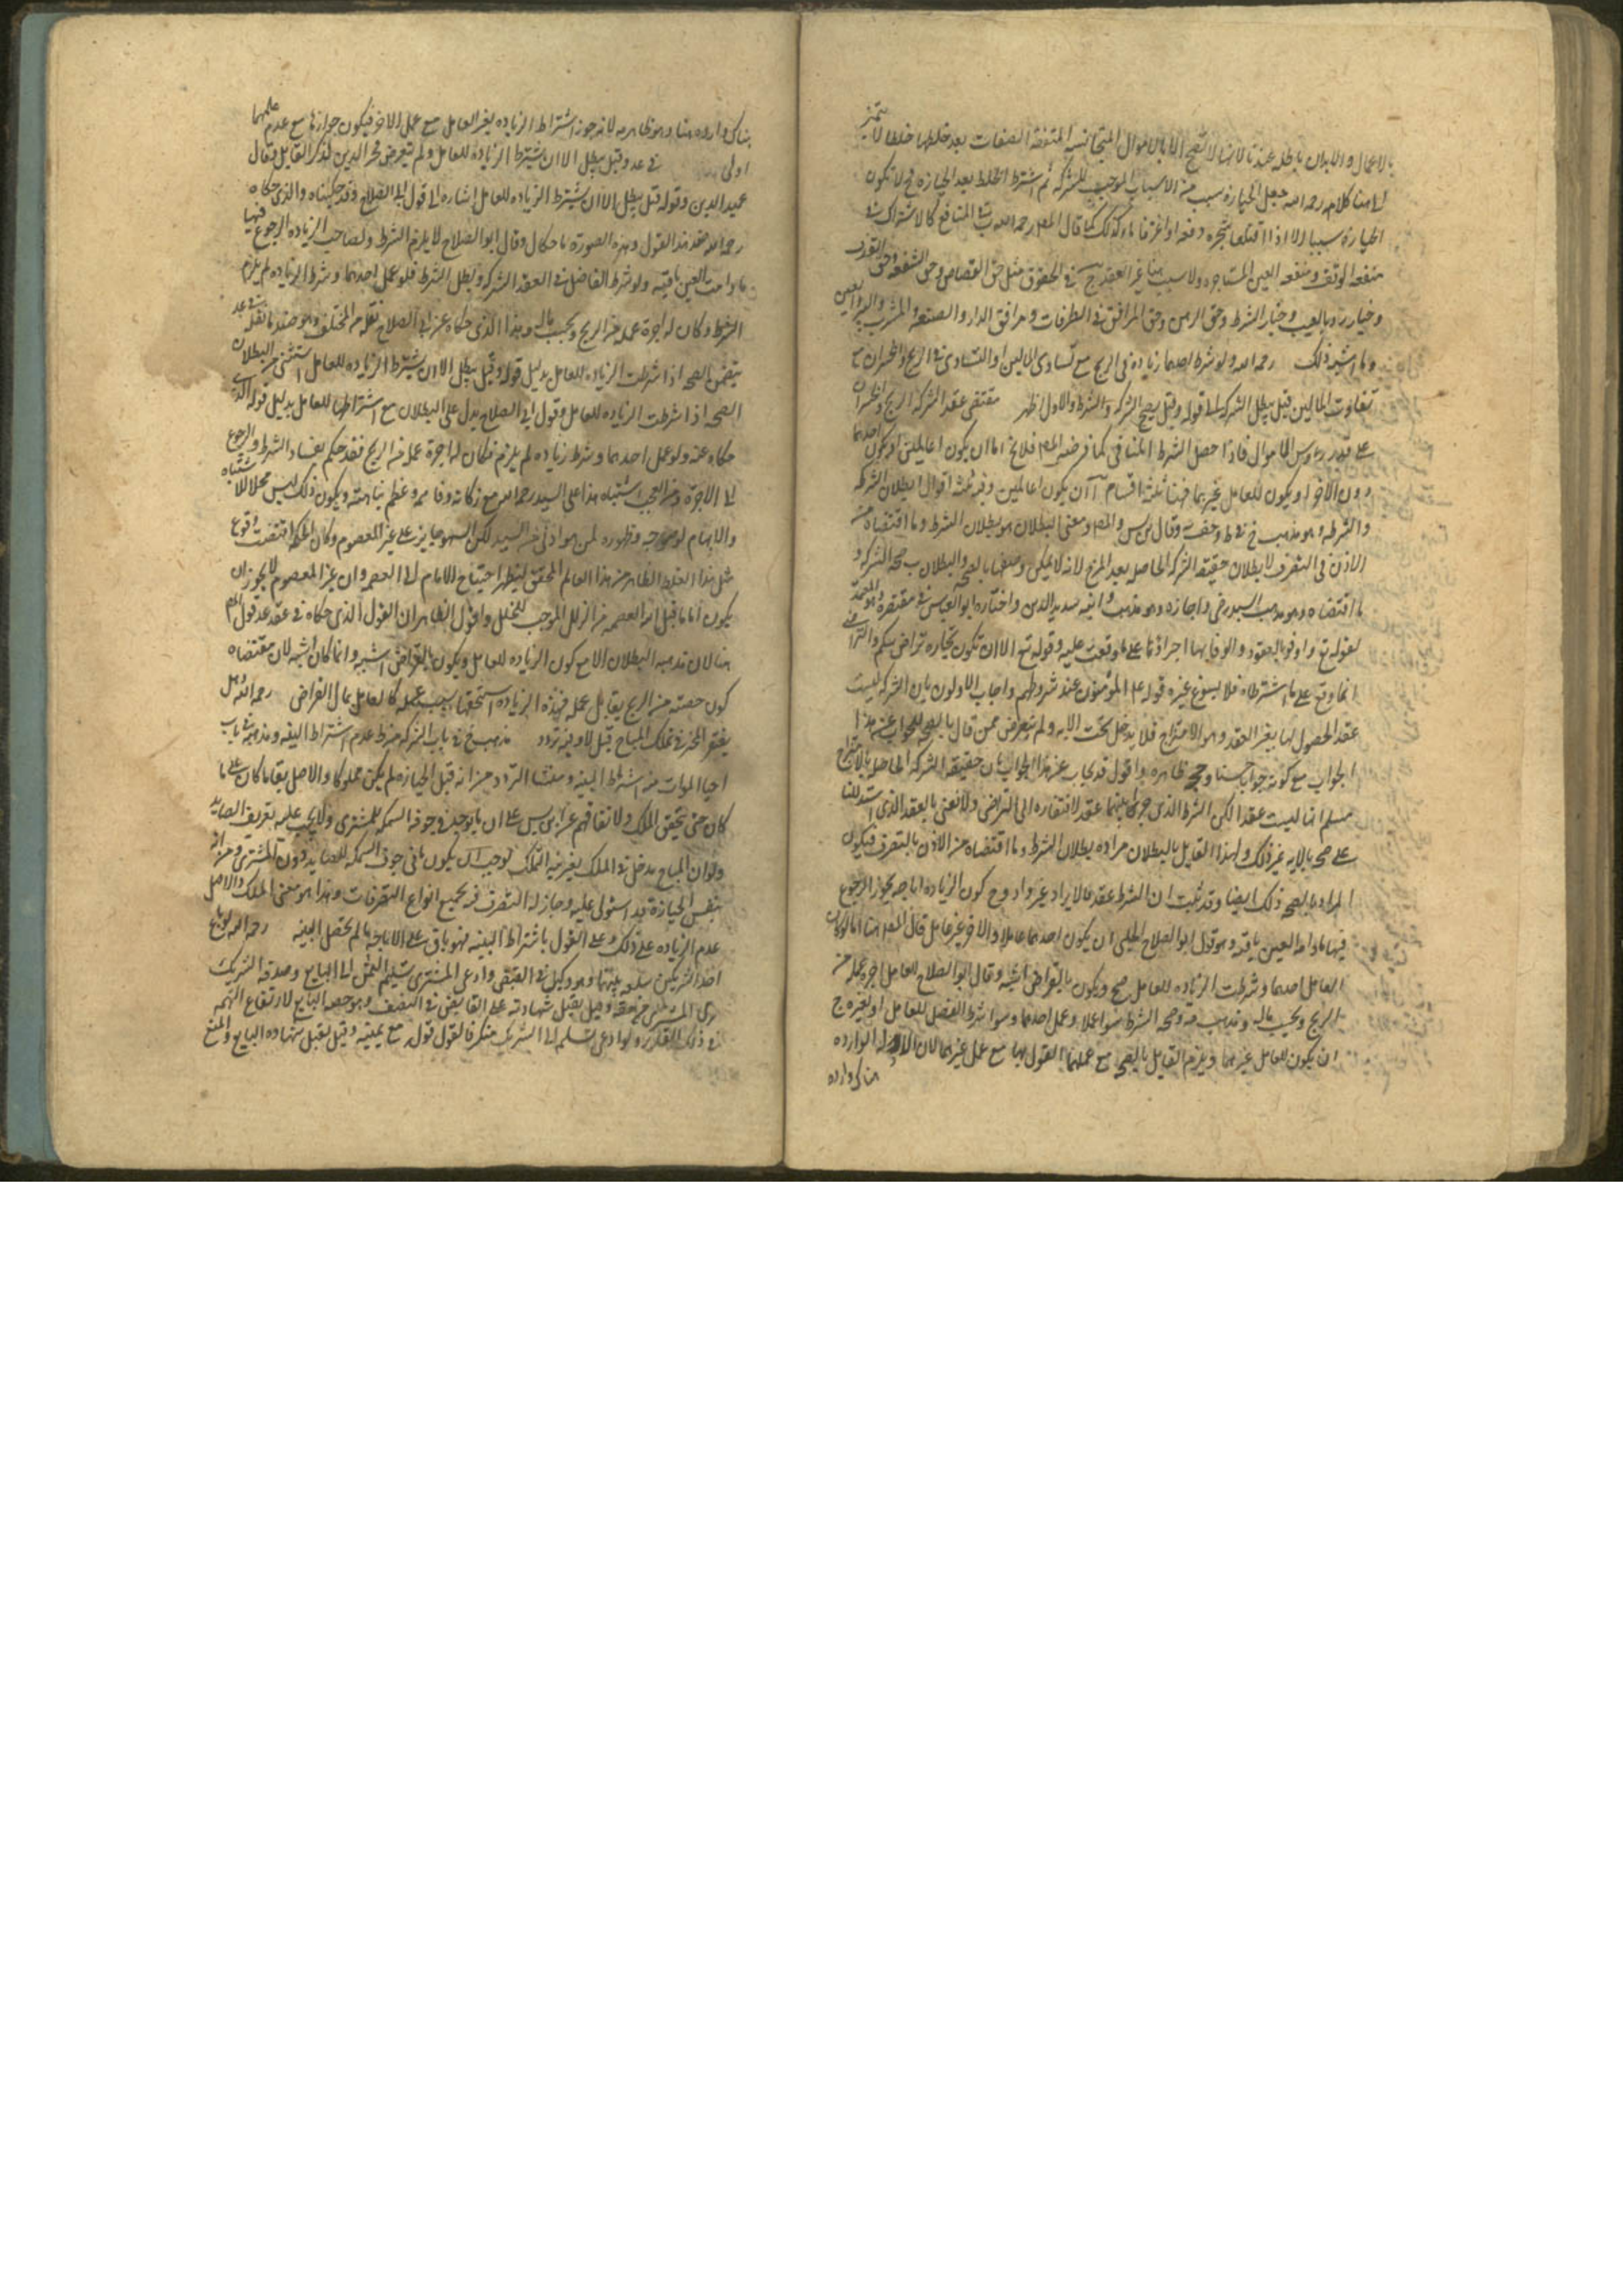 بالاعمال والابدان باطله عندنا لانها لا تصح الا بالاموال المتجانسه المتفقة الصفات بعد خلطها خلطا لا يتميز
هنا كلامه رحمه الله جعل الحيازة سبب من الاسباب الموجبه للشركه ثم اشترط الخلط بعد الحيازه فلا تكون
الحيازة سببا الا اذا اقتلعا شجره دفعه او اغترفا ماء كذلك كما قال المص رحمه الله المنافع كالاشتراك في
منفعه الوقف ومنفعه العين المستاجره ولا سبب هنا غير العقد في الحقوق مثل حق القصاص وحق الشفعه وحق القذف
وخيار رد بالعيب وخيار الشرط وحق الرهن وحق المرافق في الطرقات ومرافق الدار والضيعه والمشرب والبير والعين
وما اشبه ذلك رحمه الله ولو شرط احدهما زياده في الربح مع تساوى المالين او التساوى في الربح والخسران مع
تفاوت المالين قيل يبطل الشركه الى قوله وقيل يصح الشركه والشرط والاول اظهر مقتضى عقد الشركه الربح والخسران
على قدر رءوس الاموال فاذا حصل الشرط المنافى كما فرضه المص فلا يخ اما ان يكون عاملين او يكون احدهما
دون الاخر او يكون للعامل غيرهما فهنا ثلثه اقسام ا ان يكونا عاملين وفيه ثلثه اقوال ا بطلان الشركه
والشرط وهو مذهب وقال والمص ومعنى البطلان هو بطلان الشرط وما اقتضاه من
الاذن في التصرف لا بطلان حقيقه الشركه الحاصله بعد المزج لانه لا يمكن وصفها بالصحه والبطلان ب صحه الشركه و
ما اقتضاه وهو مذهب السيد واجازه وهو مذهب سديد الدين واختاره ابو العباس في مقتصره
لقوله تع اوفوا بالعقود والوفا بها اجراؤها على ما وقعت عليه وقوله تع الا ان تكون تجاره تراض منكم والتراضى
انما وقع على ما اشترطاه فلا يسوغ غيره قوله المؤمنون عند شروطهم واجاب الاولون بان الشركه ليست
عقدا لحصولها بغير العقد وهو الامتزاج فلا يدخل تحت الايه ولم يتعرض ممن قال بالصحه للجواب عن هذا
الجواب مع كونه جوابا حسنا ظاهره واقول قد يجاب عن هذا الجواب بان حقيقه الشركه الحاصله بالامتزاج
مسلم انها ليست عقدا لكن الشرط الذى جرى بينهما عقد لافتقاره الى التراضى ولا نعنى بالعقد الذى استدللنا
على صحه بالايه غير ذلك ولهذا القايل بالبطلان مراده بطلان الشرط وما اقتضاه من الاذن بالتصرف فيكون
المراد بالصحه ذلك ايضا وقد ثبت ان الشرط عقد كون الزياده اباحه يجوز الرجوع
فيها مادامت العين باقيه وهو قول ابو الصلاح الحلبى ان يكون احدهما عاملا والاخر غير عامل قال المص هنا
العامل احدهما وشرطت الزياده للعامل صح ويكون بالقراض اشبه وقال ابو الصلاح للعامل اجره عمله من
الربح وبحسب ماله ومذهب صحه الشرط سوا عملا او عمل احدهما وسوا شرط الفضل للعامل او لغيره ج
ان يكون للعامل غيرهما ويلزم القايل بالصحه مع عملهما القول بها مع عمل غيرهما لان الادله الوارده
هناك وارده
هناك وارده هنا وهو ظاهر لانه جوز اشتراط الزياده لغير العامل مع عمل الاخر فيكون جوازها مع عدم عملهما
اولى في عد وقيل يبطل الا ان يشترط الزيادة للعامل ولم يتعرض فخر الدين لذكر القايل وقال
عميد الدين وقوله قيل يبطل الا ان يشترط الزياده للعامل اشاره الى قول ابى الصلاح وقد حكيناه والذى حكاه
رحمه الله عقد هذا القول وهذه الصورة ما حكاه قال وقال ابو الصلاح لا يلزم الشرط ولصاحب الزياده الرجوع فيها
مادامت العين باقيه ولو شرط التفاضل في العقد الشركه ويبطل الشرط فلو عمل احدهما وشرط الزياده لم يلزم
الشرط وكان له اجرة عمله من الربح وبحسب ماله وهذا الذى حكاه عن ابى الصلاح نقله من المختلف وهو ضد ما نقل في عد
يتضمن الصحه اذا شرطت الزياده للعامل بدليل قوله وقيل يبطل الا ان يشترط الزياده للعامل استثنى من البطلان
الصحه اذا شرطت الزياده للعامل وقول ابى الصلاح يدل على البطلان مع اشتراطها للعامل بدليل قوله الذى
حكاه عنه ولو عمل احدهما وشرط زياده لم يلزم فكان له اجرة عمله من الربح فقد حكم بفساد الشرط والرجوع
الى الاجرة ومن العجب اشتباه هذا على السيد رحمه الله مع زكائه وفهمه وعظم نباهته ويكون ذلك ليس محلا للاشتباه
والابهام لوضوحه وظهوره لمن هو ادنى من السيد لكن السهو جايز على غير المعصوم وكان الحكمه اقتضت وقوع
مثل هذا الغلط الظاهر من هذا العالم المحقق ليظهر احتياج الامام الى العصمه وان غير المعصوم لا يجوز ان
يكون اماما قبل العصمه من الزلل الموجب للخلل واقول الظاهر ان القول الذى حكاه في عقد عد قول المص
هنا لان مذهبه البطلان الا مع كون الزياده للعامل ويكون بالقراض اشبه وانما كان اشبه لان مقتضاه
كون حصته من الربح يقابل عمله فهذه الزياده استحقها بسبب عمله كالعامل بمال القراض رحمه الله هل
يفتقر المحرز في تملك المباح قيل لا وفيه تردد مذهب في باب الشركه من عدم اشتراط النيه ومذهبه في باب
احيا الموات من اشتراط النيه ومنشا التردد من انه قبل الحيازه لم يكن مملوكا والاصل بقاء ما كان على ما
كان حتى يتحقق الملك ولاتفاقهم على ان ما يوجد في جوف السمكه للمشترى ولا يجب عليه تعريف الصايد
ولو ان المباح يدخل في الملك بغير نيه التملك لوجب ان يكون ما في جوف السمكه للصايد دون المشترى ومن انه
بنفس الحيازة قد استولى عليه وجاز له التصرف في جميع انواع التصرفات وهذا هو معنى الملك والاصل
عدم الزياده على ذلك وعلى القول باشتراط النيه فهو باق على الاباحه ما لم يحصل النيه رحمه الله لو باع
احد الشريكين سلعه بينهما وهو وكيل في القبض وادعى المشترى تسليم الثمن الى البايع وصدقه الشريك
برى المشترى من حقه وقيل يقبل شهادته على القابض في النصف وهو حصه البايع لارتفاع التهمه
في ذلك القدر ولو ادعى تسليمه الى الشريك منكرا فالقول قوله مع يمينه وقيل يقبل شهاده البايع والمنع